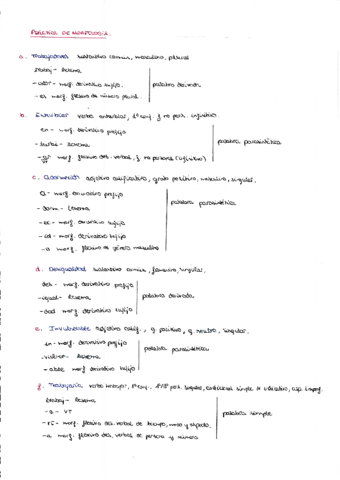 PRÁCTICA DE MORFOLOGÍA.
a. Trabajadores sustantivo común, masculino, plural
trabaj- lexema
-ador- morf. derivativo sufijo palabra derivada
-es morf. flexivo de número plural
b. Enturbiar verbo enturbiar, 1ª conj. f no pers. infinitivo
en- morf. derivativo prefijo
-turbi- lexema palabra parasintética
-ar morf. flexivo des. verbal, f no personal (infinitivo)
c. adjetivo calificativo, grado positivo, masculino, singular.
a- morf. derivativo prefijo
-dorm- lexema palabra parasintética
-ec- morf. derivativo sufijo
-id- morf. derivativo sufijo
-o morf. flexivo de género masculino
d. Desigualdad sustantivo común, femenino, singular.
des- morf. derivativo prefijo
-igual- lexema palabra derivada
-dad morf. derivativo sufijo
e. Invulnerable adjetivo calif., g positivo, g neutro, singular.
in- morf. derivativo prefijo
-vulner- lexema palabra parasintética
-able morf derivativo sufijo
f. Trabajaría verbo trabajar, 1ª conj. 1ª/3ª pers. singular, condicional simple asp. imperf.
trabaj- lexema
-a- VT palabra simple
-ría- morf. flexivo des. verbal de tiempo, modo y aspecto.
-ø morf. flexivo des. verbal de persona y número